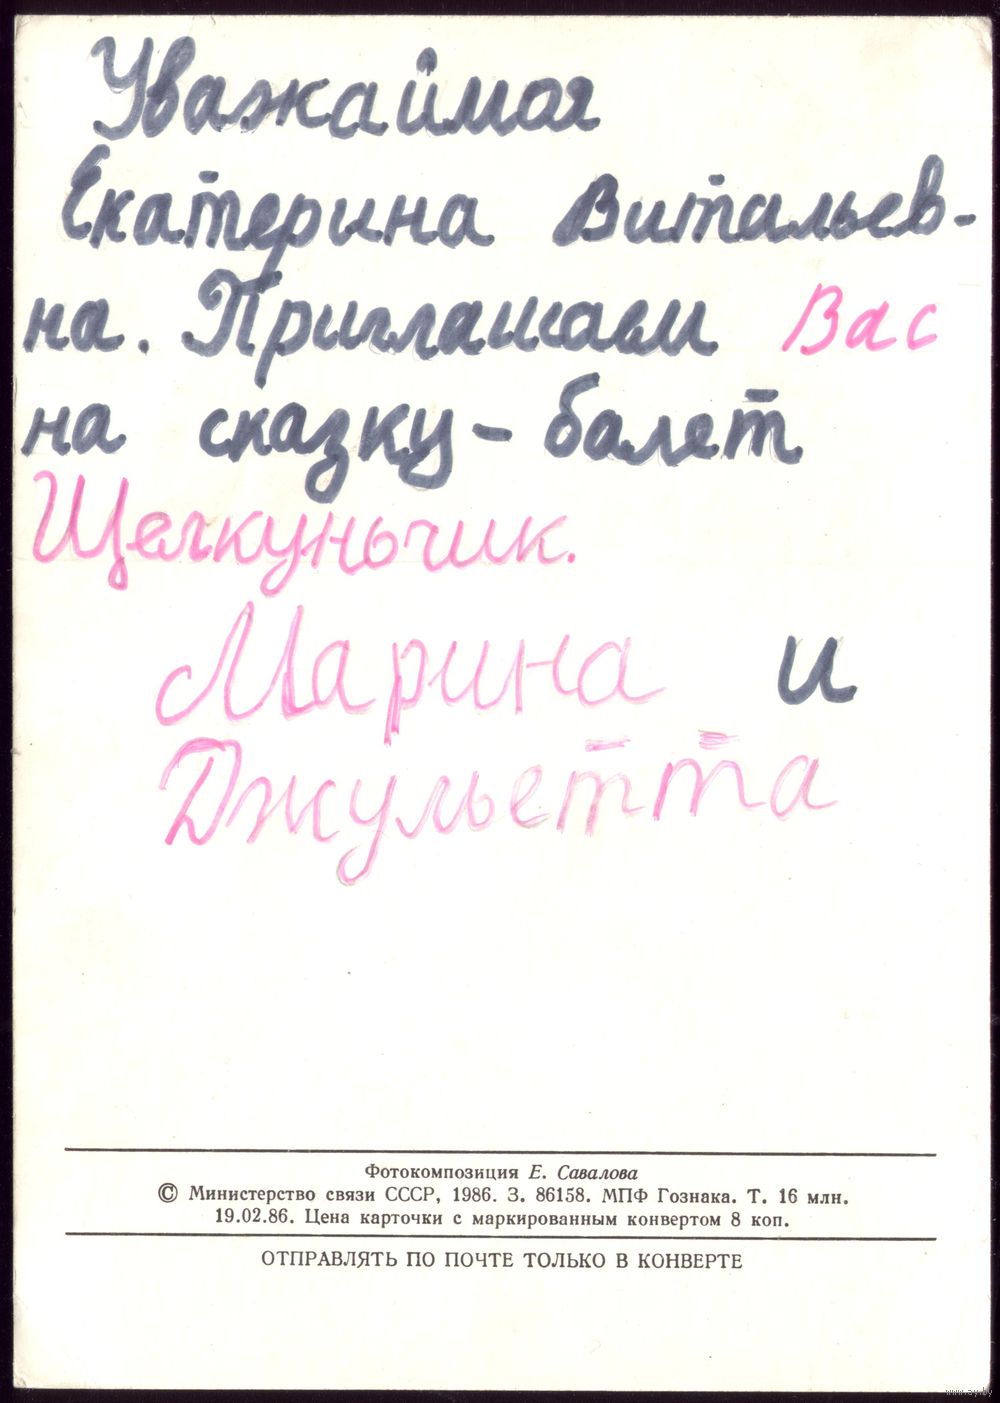 Уважаймоя
Екатерина Витальев-
на. Приглашаем Вас
на сказку - балет
Щелкуньчик.
Марина и
Джульетта
Фотокомпозиция Е. Савалова
© Министерство связи СССР, 1986. З. 86158. МПФ Гознака. Т. 16 млн.
19.02.86. Цена карточки с маркированным конвертом 8 коп.
ОТПРАВЛЯТЬ ПО ПОЧТЕ ТОЛЬКО В КОНВЕРТЕ
www.ay.by